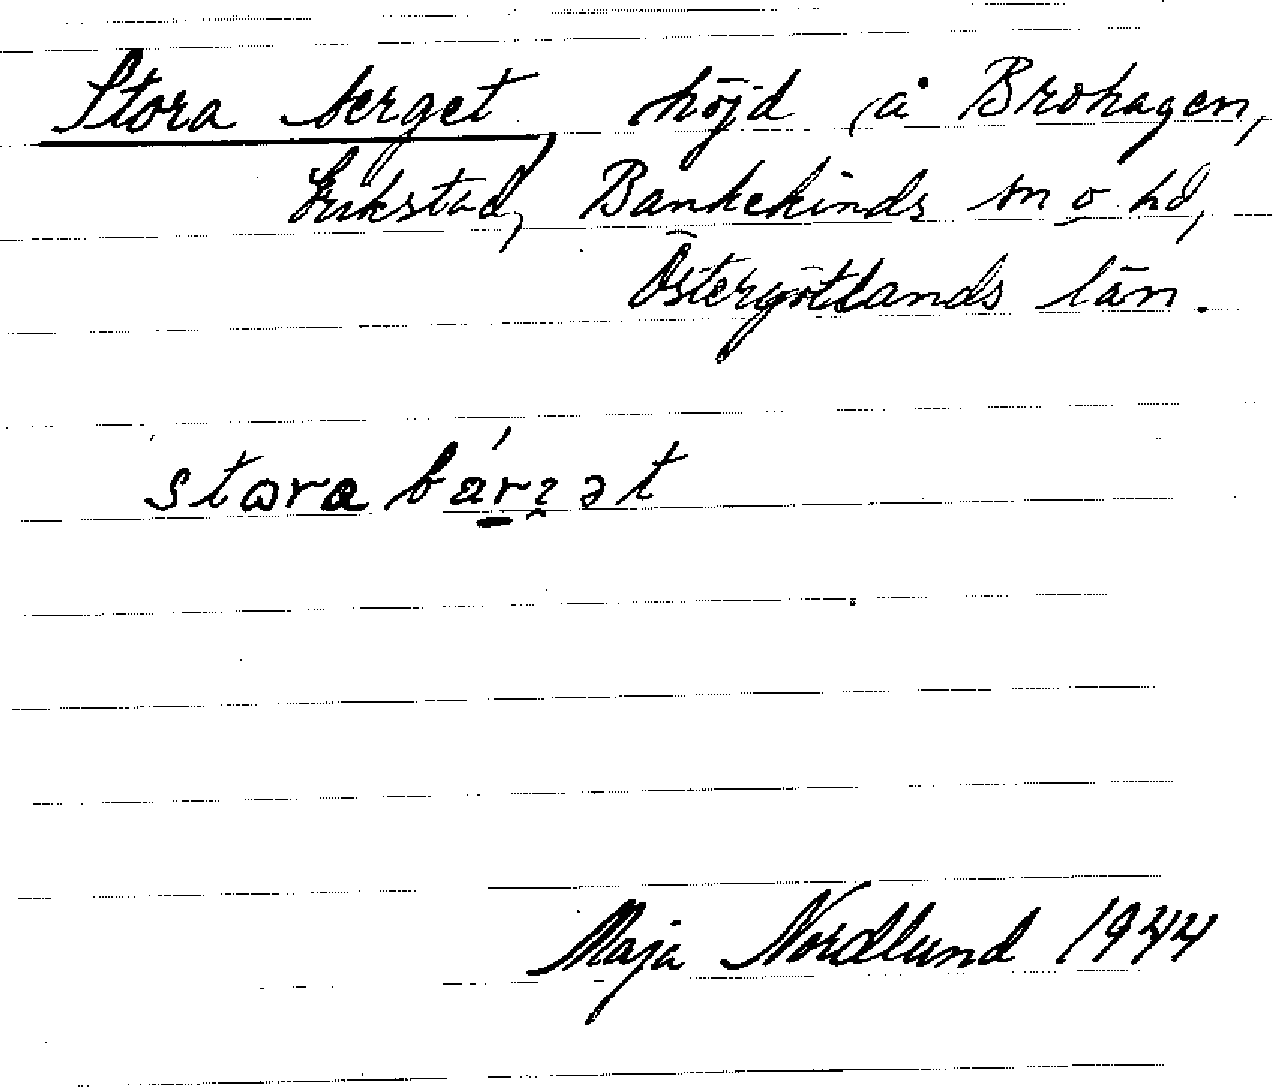 Stora berget, höjd å Brohagen,
Erikstad, Bankekinds sn o. hd,
Östergötlands län.
stora bárzət
Maja Nordlund 1944